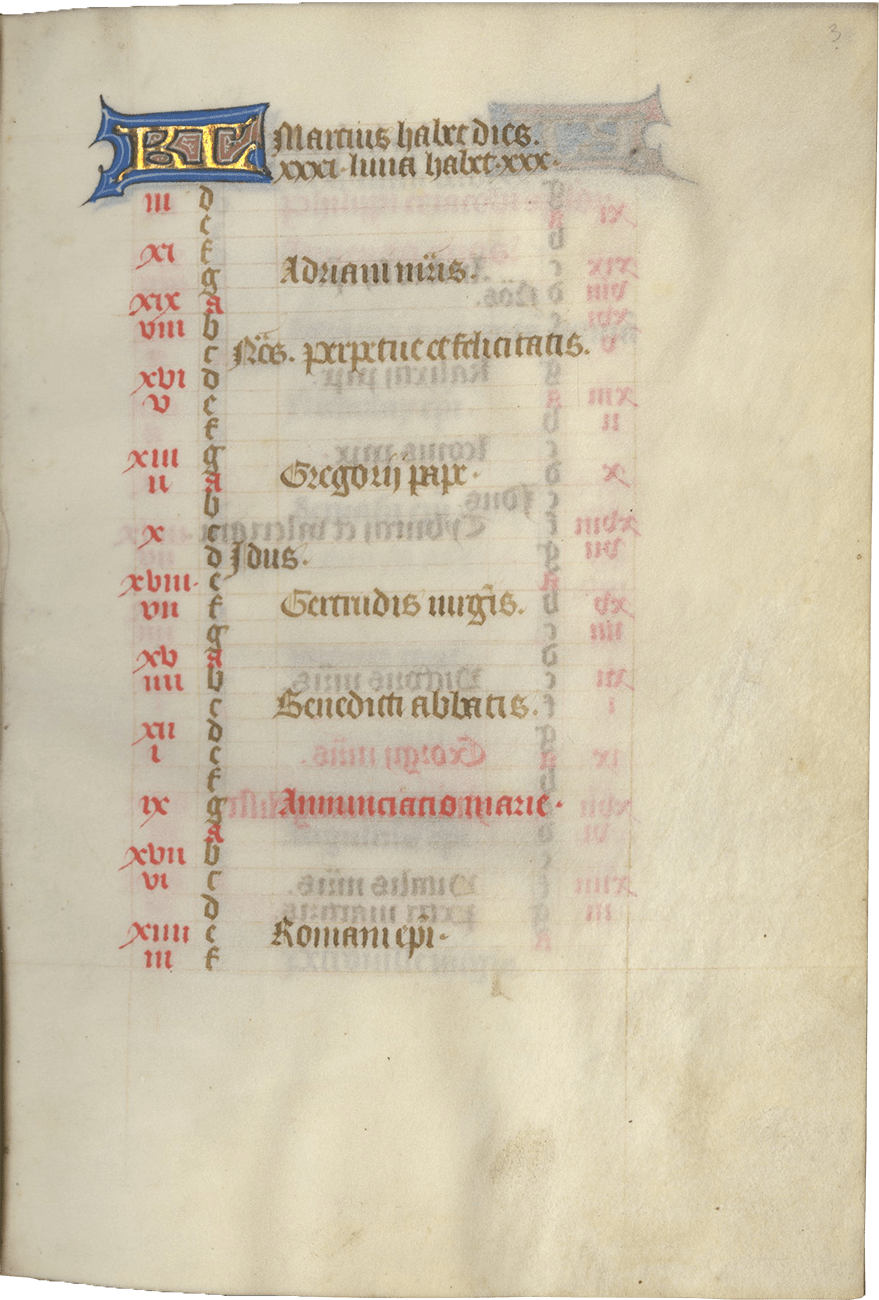 3
KL Marcius habet dies.
xxxi. luna habet. xxx.
iii d
e
xi f
g Adriani mr̃is.
xix a
viii b
c No͠s. perpetue et felicitatis.
xvi d
v e
f
xiii g
ii a Gregorij pape.
b
x c
d Jdus.
xviii. e
vii f Gertrudis uirgĩs.
g
xv a
iiii b
c Benedicti abbatis.
xii d
i e
f
ix g Annunciacio marie.
a
xvii b
vi c
d
xiiii e Romani epĩ.
iii f